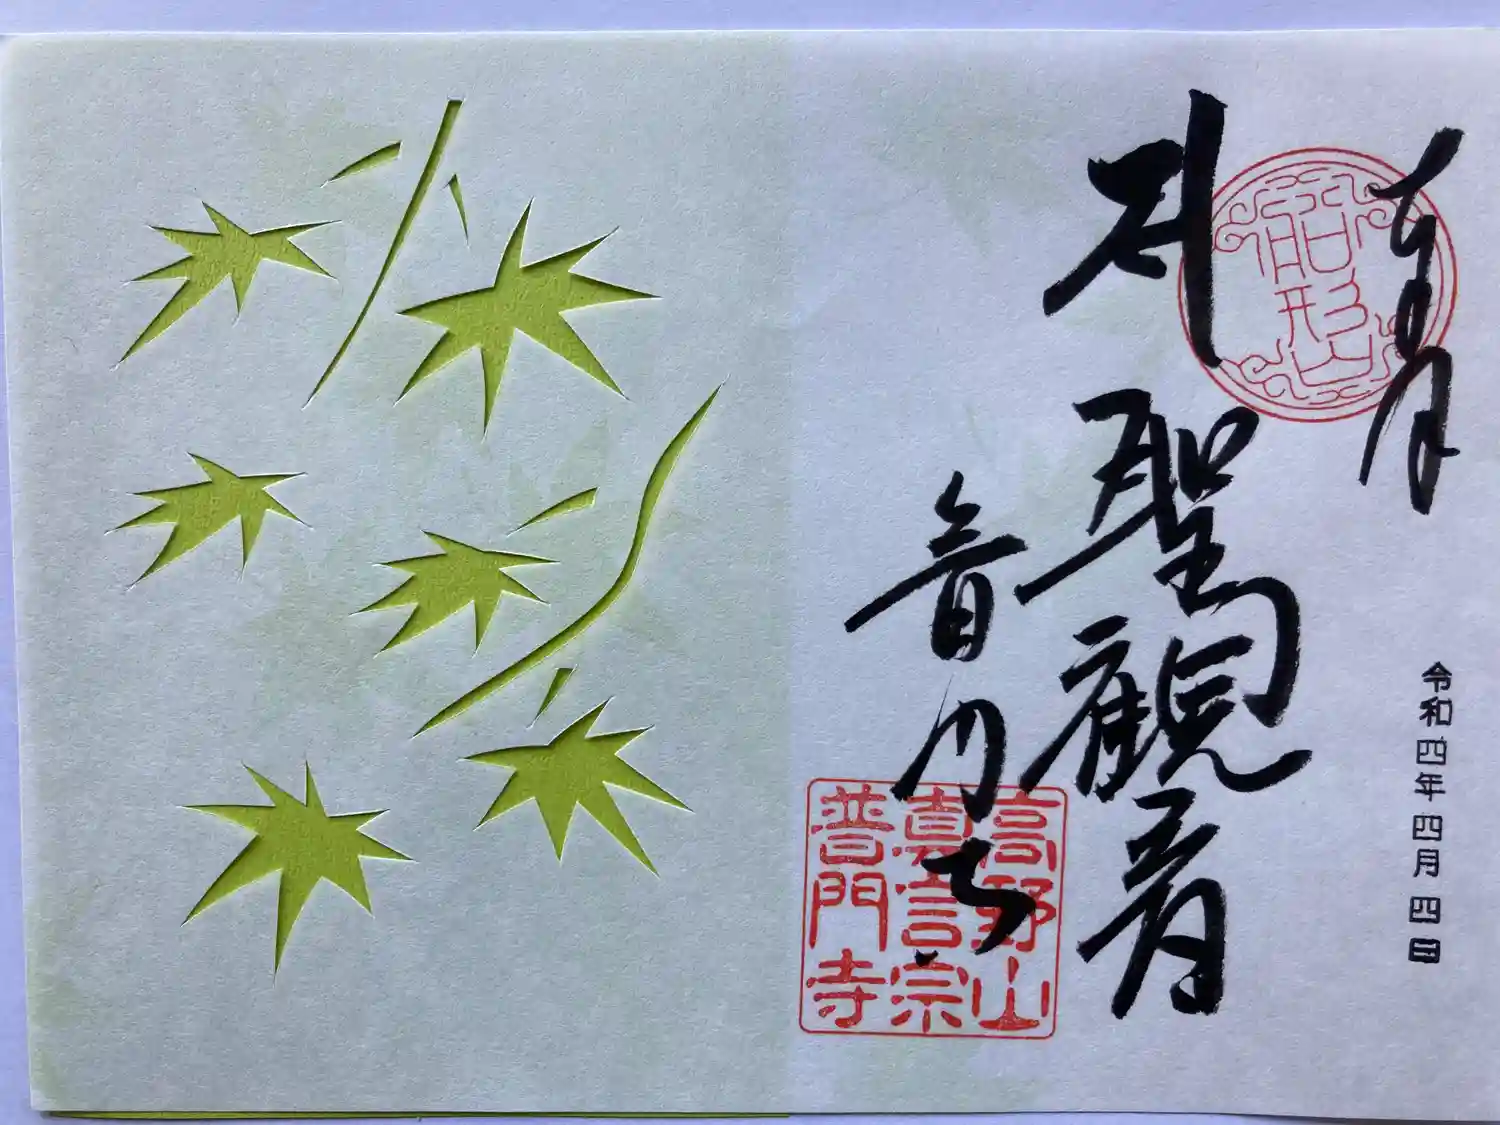 奉拝
聖観音
普門寺
令和四年四月四日
高野山
真言宗
普門寺